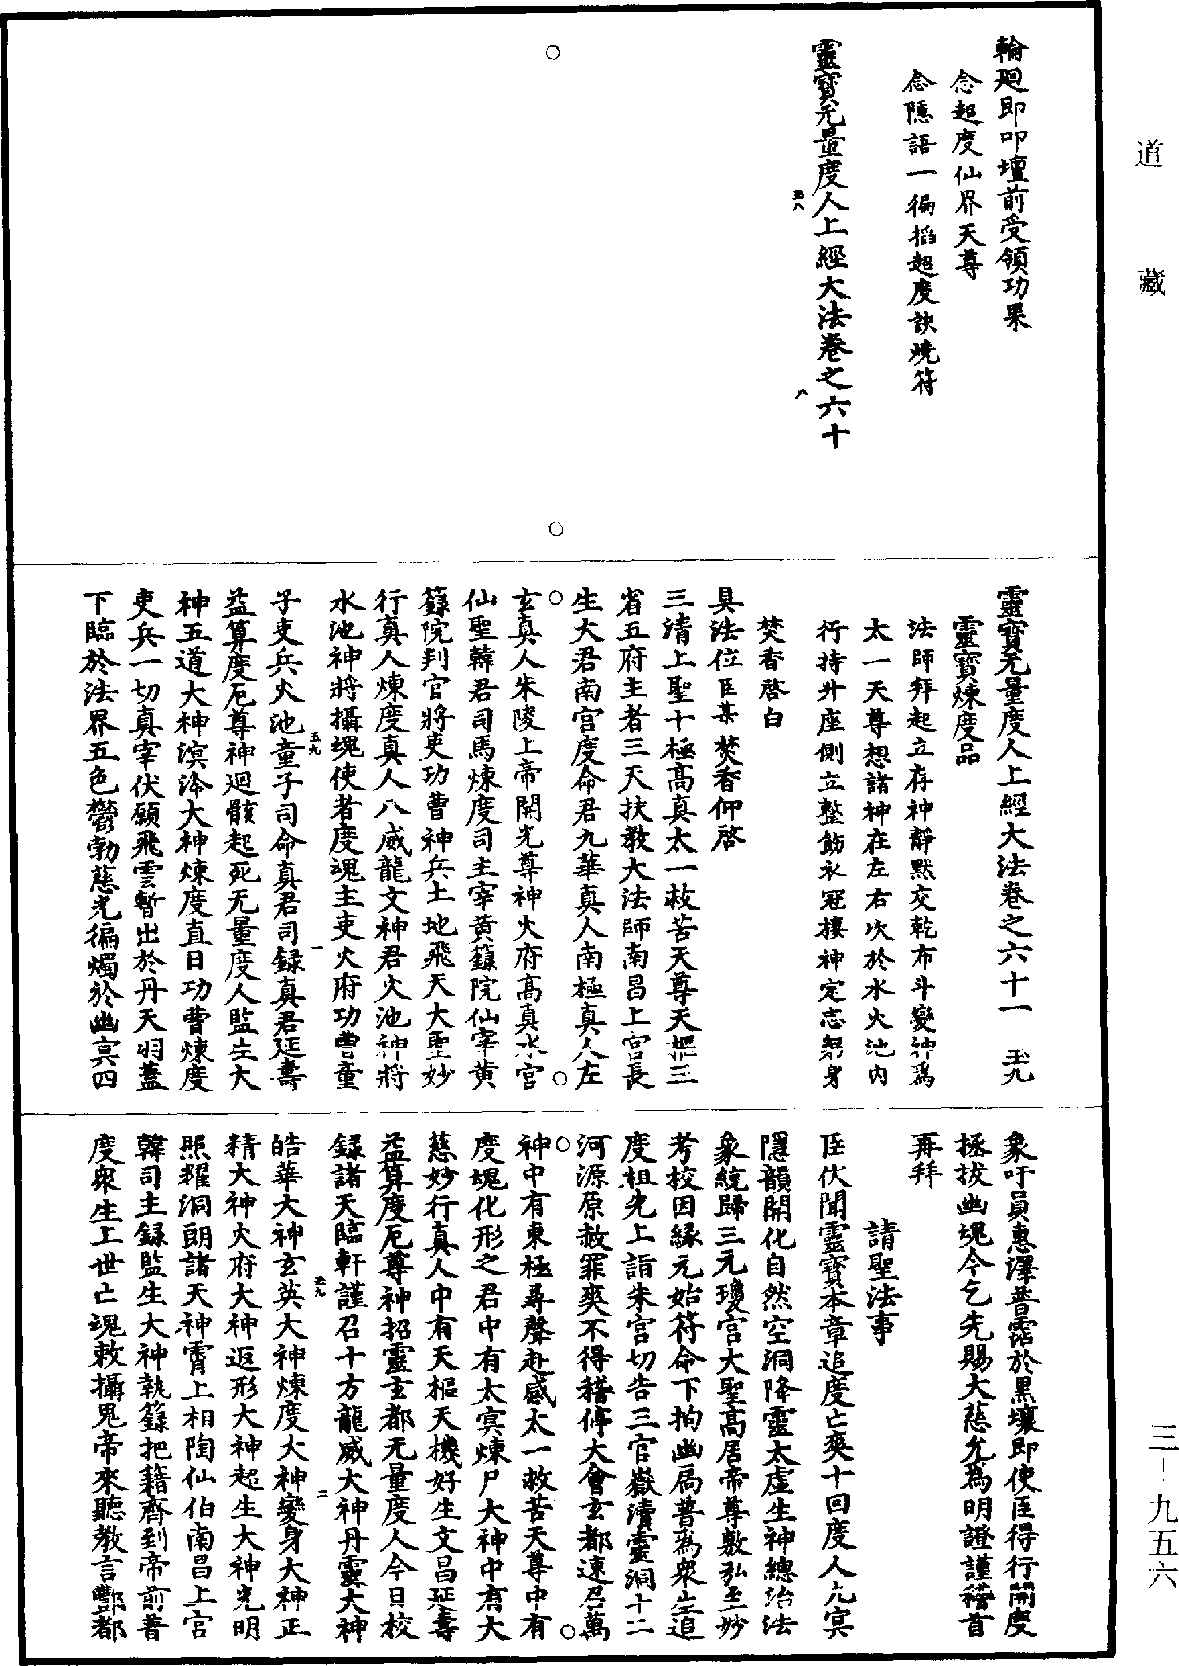 道藏
輪廻即叩壇前受領功果
念超度仙界天尊
念隱語一徧掐超度訣燒符
靈寶无量度人上經大法卷之六十
五八
八
靈寶无量度人上經大法卷之六十一 五九
靈寶煉度品
法師拜起立存神靜默交乾布斗變神爲
太一天尊想諸神在左右次於水火池內
行持升座側立整飭衣冠摟神定志躬身
焚香啓白
具法位臣某焚香仰啓
三清上聖十極高真太一救苦天尊天樞三
省五府主者三天扶教大法師南昌上宮長
生大君南宮度命君九華真人南極真人左
玄真人朱陵上帝開光尊神火府高真水宮
仙聖韓君司馬煉度司主宰黄籙院仙宰黄
籙院判官將吏功曹神兵土地飛天大聖妙
行真人煉度真人八威龍文神君火池神將
水池神將攝魂使者度魂主吏火府功曹童
五九
一
子吏兵火池童子司命真君司錄真君延壽
益算度厄尊神迴骸起死无量度人監生大
神五道大神溟泠大神煉度直日功曹煉度
吏兵一切真宰伏願飛雲暫出於丹天羽蓋
下臨於法界五色鬱勃慈光徧燭於幽冥四
象吁員惠澤普霑於黑壤即使臣得行開度
拯拔幽魂今乞先賜大慈允爲明證謹稽首
再拜
請聖法事
臣伏聞靈寶本章追度亡爽十回度人九冥
隱韻開化自然空洞降靈太虛生神總治法
象統歸三元瓊宮大聖高居帝尊敷弘至妙
考校因緣元始符命下拘幽局普爲衆生追
度祖先上詣朱宮切告三官嶽瀆靈洞十二
河源原赦罪爽不得稽停大會玄都速召萬
神中有東極尋聲赴感太一救苦天尊中有
度魂化形之君中有太冥煉尸大神中有大
慈妙行真人中有天樞天機好生文昌延壽
益算度厄尊神招靈玄都无量度人今日校
錄諸天臨軒謹召十方龍威大神丹靈大神
五九
二
皓華大神玄英大神煉度大神變身大神正
精大神火府大神返形大神起生大神光明
照耀洞朗諸天神霄上相陶仙伯南昌上宮
韓司主錄監生大神執籙把籍齊到帝前普
度衆生上世亡魂敕攝鬼帝來聽教言酆都
三—九五六